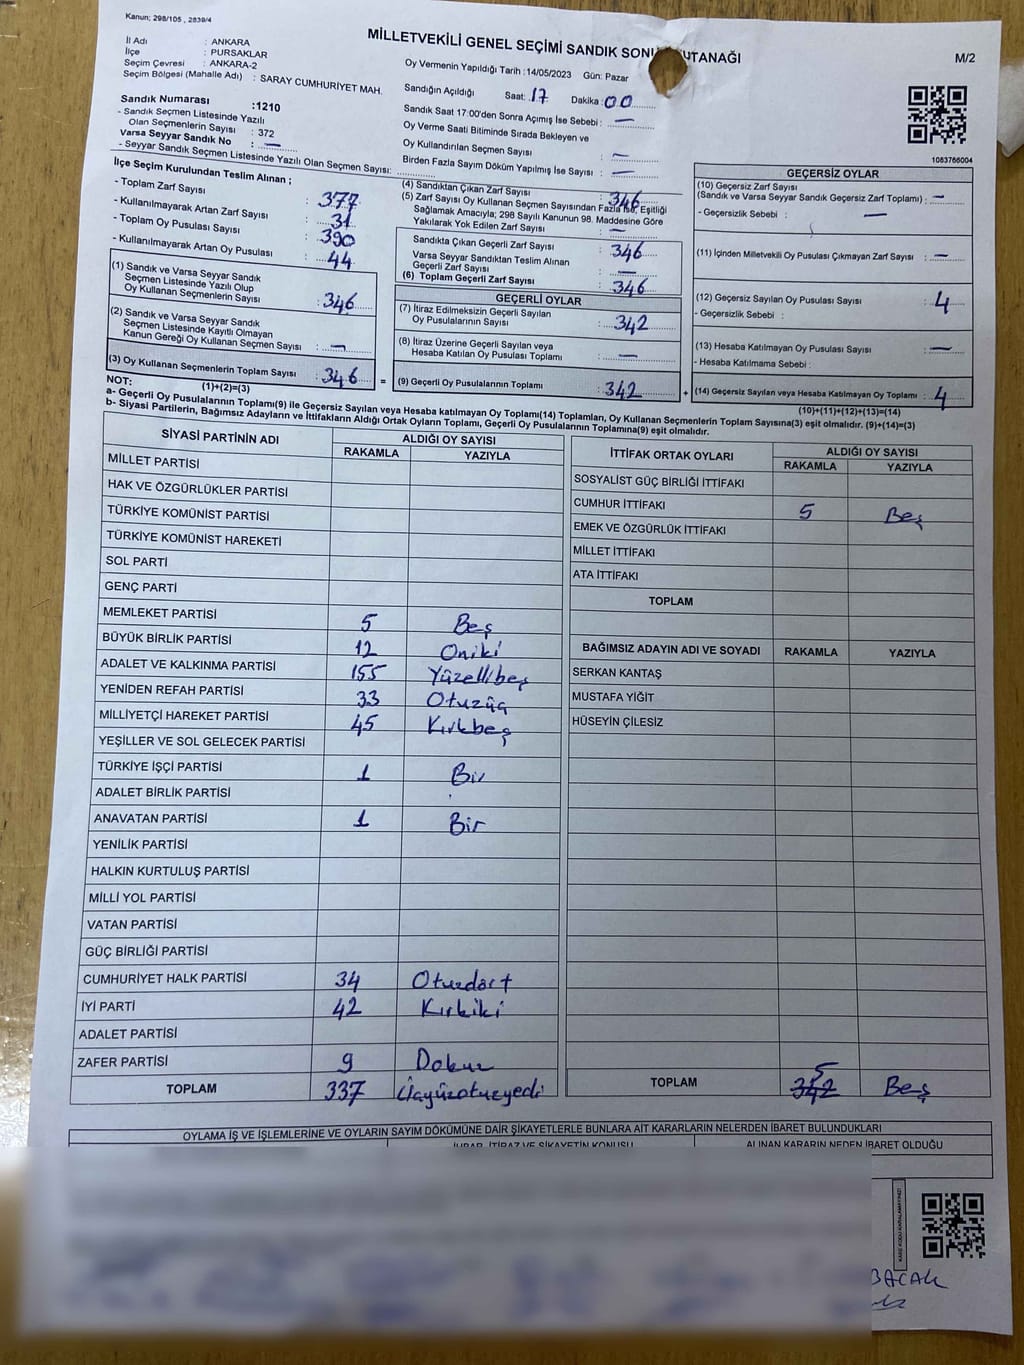 Kanun; 298/105 , 2839/4
MİLLETVEKİLİ GENEL SEÇİMİ SANDIK SONU UTANAĞI
M/2
İl Adı : ANKARA
İlçe : PURSAKLAR
Seçim Çevresi : ANKARA-2
Seçim Bölgesi (Mahalle Adı) : SARAY CUMHURİYET MAH.
Sandık Numarası :1210
- Sandık Seçmen Listesinde Yazılı
Olan Seçmenlerin Sayısı : 372
Varsa Seyyar Sandık No : —
- Seyyar Sandık Seçmen Listesinde Yazılı Olan Seçmen Sayısı:
Oy Vermenin Yapıldığı Tarih :14/05/2023 Gün: Pazar
Sandığın Açıldığı Saat: 17 Dakika: 00
Sandık Saat 17:00'den Sonra Açımış İse Sebebi : —
Oy Verme Saati Bitiminde Sırada Bekleyen ve
Oy Kullandırılan Seçmen Sayısı : —
Birden Fazla Sayım Döküm Yapılmış İse Sayısı : —
1083766004
İlçe Seçim Kurulundan Teslim Alınan ;
- Toplam Zarf Sayısı : 377
- Kullanılmayarak Artan Zarf Sayısı : 31
- Toplam Oy Pusulası Sayısı : 390
- Kullanılmayarak Artan Oy Pusulası : 44
(1) Sandık ve Varsa Seyyar Sandık
Seçmen Listesinde Yazılı Olup
Oy Kullanan Seçmenlerin Sayısı : 346
(2) Sandık ve Varsa Seyyar Sandık
Seçmen Listesinde Kayıtlı Olmayan
Kanun Gereği Oy Kullanan Seçmen Sayısı : —
(3) Oy Kullanan Seçmenlerin Toplam Sayısı : 346 =
(1)+(2)=(3)
(4) Sandıktan Çıkan Zarf Sayısı : 346
(5) Zarf Sayısı Oy Kullanan Seçmen Sayısından Fazla İse, Eşitliği
Sağlamak Amacıyla; 298 Sayılı Kanunun 98. Maddesine Göre
Yakılarak Yok Edilen Zarf Sayısı : —
Sandıkta Çıkan Geçerli Zarf Sayısı : 346
Varsa Seyyar Sandıktan Teslim Alınan
Geçerli Zarf Sayısı : —
(6) Toplam Geçerli Zarf Sayısı : 346
GEÇERLİ OYLAR
(7) İtiraz Edilmeksizin Geçerli Sayılan
Oy Pusulalarının Sayısı : 342
(8) İtiraz Üzerine Geçerli Sayılan veya
Hesaba Katılan Oy Pusulası Toplamı : —
(9) Geçerli Oy Pusulalarının Toplamı : 342 +
GEÇERSİZ OYLAR
(10) Geçersiz Zarf Sayısı
(Sandık ve Varsa Seyyar Sandık Geçersiz Zarf Toplamı) : —
- Geçersizlik Sebebi : —
(11) İçinden Milletvekili Oy Pusulası Çıkmayan Zarf Sayısı : —
(12) Geçersiz Sayılan Oy Pusulası Sayısı : 4
- Geçersizlik Sebebi :
(13) Hesaba Katılmayan Oy Pusulası Sayısı : —
- Hesaba Katılmama Sebebi :
(14) Geçersiz Sayılan veya Hesaba Katılmayan Oy Toplamı : 4
(10)+(11)+(12)+(13)=(14)
NOT:
a- Geçerli Oy Pusulalarının Toplamı(9) ile Geçersiz Sayılan veya Hesaba katılmayan Oy Toplamı(14) Toplamları, Oy Kullanan Seçmenlerin Toplam Sayısına(3) eşit olmalıdır. (9)+(14)=(3)
b- Siyasi Partilerin, Bağımsız Adayların ve İttifakların Aldığı Ortak Oyların Toplamı, Geçerli Oy Pusulalarının Toplamına(9) eşit olmalıdır.
SİYASİ PARTİNİN ADI ALDIĞI OY SAYISI
RAKAMLA YAZIYLA
MİLLET PARTİSİ
HAK VE ÖZGÜRLÜKLER PARTİSİ
TÜRKİYE KOMÜNİST PARTİSİ
TÜRKİYE KOMÜNİST HAREKETİ
SOL PARTİ
GENÇ PARTİ
MEMLEKET PARTİSİ 5 Beş
BÜYÜK BİRLİK PARTİSİ 12 Oniki
ADALET VE KALKINMA PARTİSİ 155 Yüzellibeş
YENİDEN REFAH PARTİSİ 33 Otuzüç
MİLLİYETÇİ HAREKET PARTİSİ 45 Kırkbeş
YEŞİLLER VE SOL GELECEK PARTİSİ
TÜRKİYE İŞÇİ PARTİSİ 1 Bir
ADALET BİRLİK PARTİSİ
ANAVATAN PARTİSİ 1 Bir
YENİLİK PARTİSİ
HALKIN KURTULUŞ PARTİSİ
MİLLİ YOL PARTİSİ
VATAN PARTİSİ
GÜÇ BİRLİĞİ PARTİSİ
CUMHURİYET HALK PARTİSİ 34 Otuzdört
İYİ PARTİ 42 Kırkiki
ADALET PARTİSİ
ZAFER PARTİSİ 9 Dokuz
TOPLAM 337 Üçyüzotuzyedi
İTTİFAK ORTAK OYLARI ALDIĞI OY SAYISI
RAKAMLA YAZIYLA
SOSYALİST GÜÇ BİRLİĞİ İTTİFAKI
CUMHUR İTTİFAKI 5 Beş
EMEK VE ÖZGÜRLÜK İTTİFAKI
MİLLET İTTİFAKI
ATA İTTİFAKI
TOPLAM
BAĞIMSIZ ADAYIN ADI VE SOYADI RAKAMLA YAZIYLA
SERKAN KANTAŞ
MUSTAFA YİĞİT
HÜSEYİN ÇİLESİZ
5
TOPLAM 342 Beş
OYLAMA İŞ VE İŞLEMLERİNE VE OYLARIN SAYIM DÖKÜMÜNE DAİR ŞİKAYETLERLE BUNLARA AİT KARARLARIN NELERDEN İBARET BULUNDUKLARI
İTİRAZ VE ŞİKAYETİN KONUSU ALINAN KARARIN NEDEN İBARET OLDUĞU